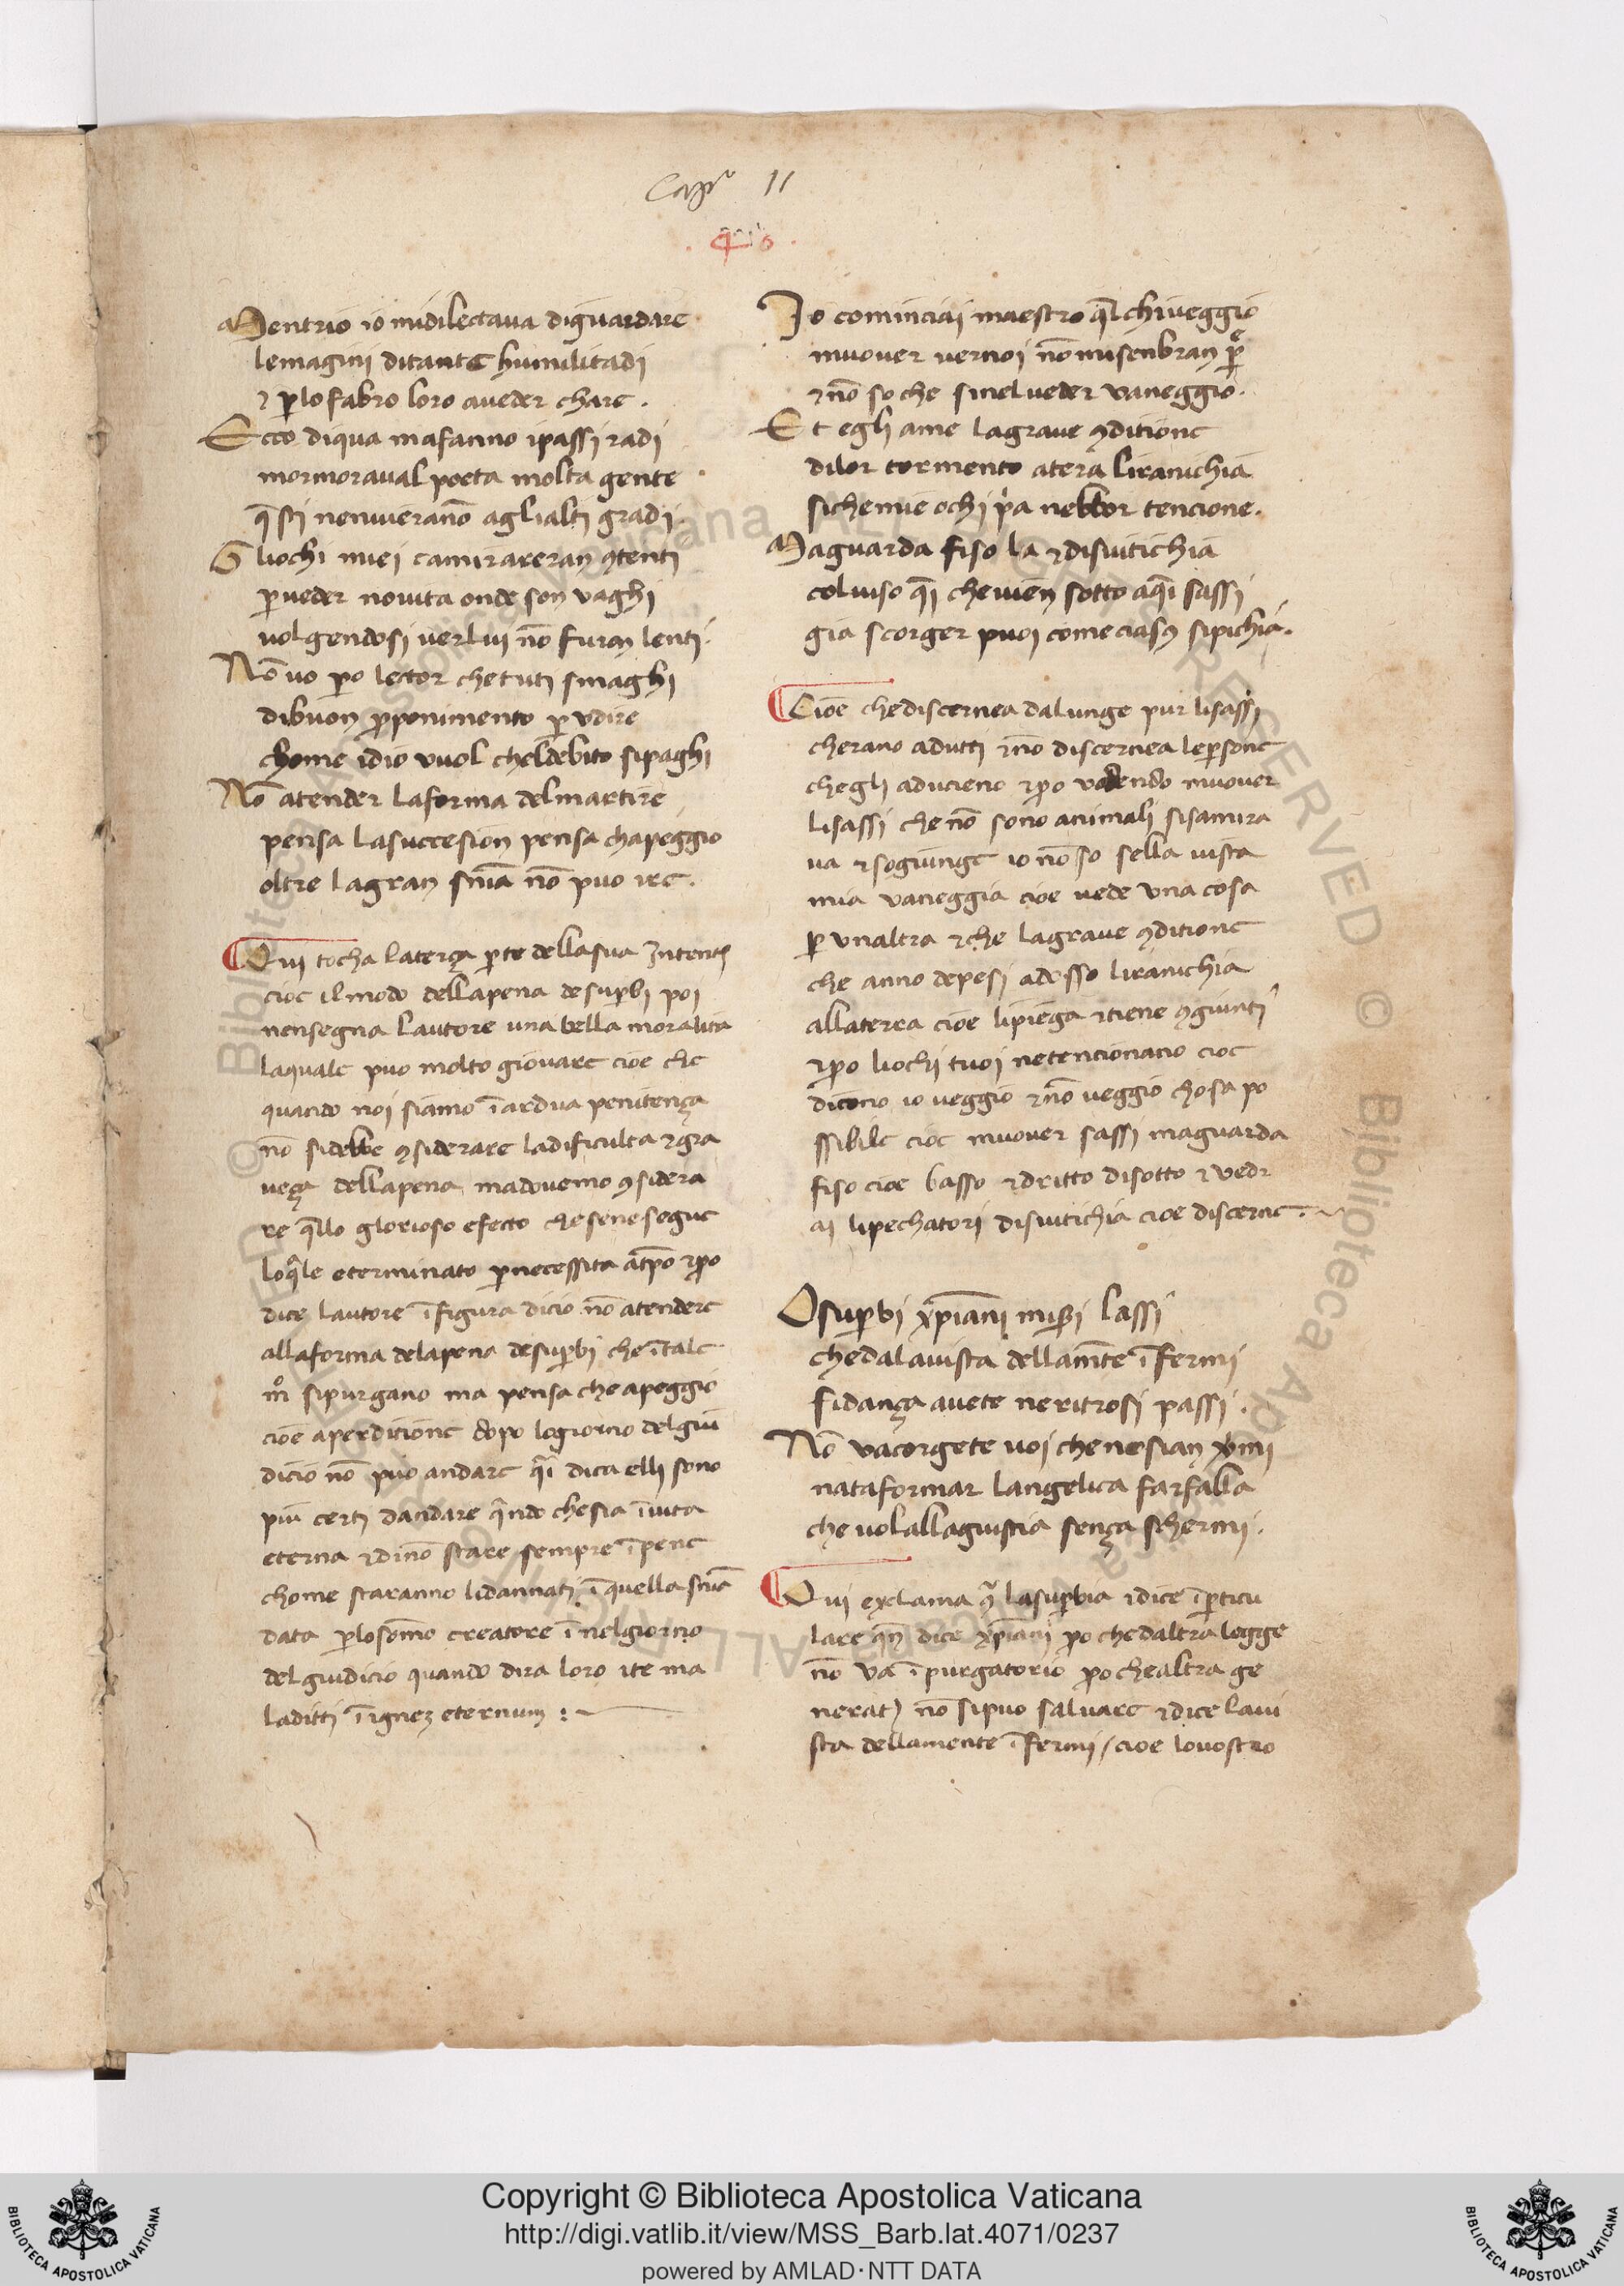 Capº 11
Mentrio io midilectaua diguardare
lemagini ditante humilitadi
⁊ ꝑlo fabro loro aueder chare .
Ecco diqua mafanno ipassi radi
mormoraual poeta molta gente
q̄sti nenuieranō aglialti gradi .
Gliochi miei camirareran ꝯtenti
ꝑueder nouita onde son vaghi
uolgendosi uerlui nō furan lenti .
Nō uo ꝑo lector chetuti smaghi
dibuon ꝓponimento ꝑ vdire
chome idio vuol cheldebito sipaghi
Nō atender laforma delmartire
pensa lasuccesion pensa chapeggio
oltre lagran sn̄ia nō puo ire .
Qui tocha laterça ꝑte dellasua Intent
cioe ilmodo dellapena desuꝑbi poi
nensegna lautore una bella moralita
laquale puo molto giouare cioe che
quando noi siamo ī ardua penitença
nō sidebbe ꝯsiderare ladificulta ⁊gra
ueça dellapena madouemo ꝯsidera
re q̄llo glorioso efecto chesene segue
loq̄le eterminato ꝑnecessita atp̄o ⁊ꝑo
dice lautore ī figura dicio nō atendere
allaforma delapena desuꝑbi che ītale
mº sipurgano ma pensa che apeggio
cioe aperditione dopo logiorno delgiu
dicio nō puo andare q̄i dica elli sono
piu certi dandare q̄ndo chesia ī uita
eterna ⁊dinō stare sempre ī pene
chome staranno lidannati ī quella sn̄ia
data ꝑlosom̄o creatore ī nelgiorno
delgiudicio quando dira loro ite ma
laditti ī ignez eternum :
Io cominciai maestro q̄l chiueggio
muouer uernoi nōmisenbran ꝑe
⁊nō so che sinelueder vaneggio .
Et egli ame lagraue ꝯditione
dilor tormento atera liranichia
sichemie ochi pͥa nebbor tencione .
Maguarda fiso la ⁊disuitichia
coluiso q̄i cheuien sotto aq̄i sassi
gia scorger puoi come ciasꝯ sipichia .
Cioe chediscernea dalunge pur lisassi
cherano adutti ⁊nō discernea leꝑsone
chegli aducieno ⁊ꝑo vedendo muouer
lisassi che nō sono animali sisamira
ua ⁊sogiunge io nō so sella uista
mia vaneggia cioe uede vna cosa
ꝑ vnaltra ⁊che lagraue ꝯditione
che anno depesi adosso liranichia
allaterra cioe lipiega ⁊tiene ꝯgiunti
⁊ꝑo liochi tuoi netencionano cioe
dicono io veggio ⁊nō veggio chosa po
ssibile cioe muouer sassi maguarda
fiso cioe basso ⁊dritto disotto ⁊ vedr
ai lipechatori disuitichia cioe discerne .
O suꝑbi xp̄iani miseri lassi
chedalauista dellam̄te ī fermi
fidança auete neritrosi passi .
Nō vacorgete uoi chenosian vermi
nataformar langelica farfalla
che uolallagiustia sença schermi .
Qui exclama ꝯ lasuꝑbia ⁊dice ī ꝑticu
lare q̄n dice xp̄iani ꝑo chedaltra legge
nō va ī purgatorio ꝑo chealtra ge
nerat nō sipuo saluare ⁊dice laui
sta dellamente ī fermi / cioe louostro
Copyright © Biblioteca Apostolica Vaticana
http://digi.vatlib.it/view/MSS_Barb.lat.4071/0237
powered by AMLAD·NTT DATA